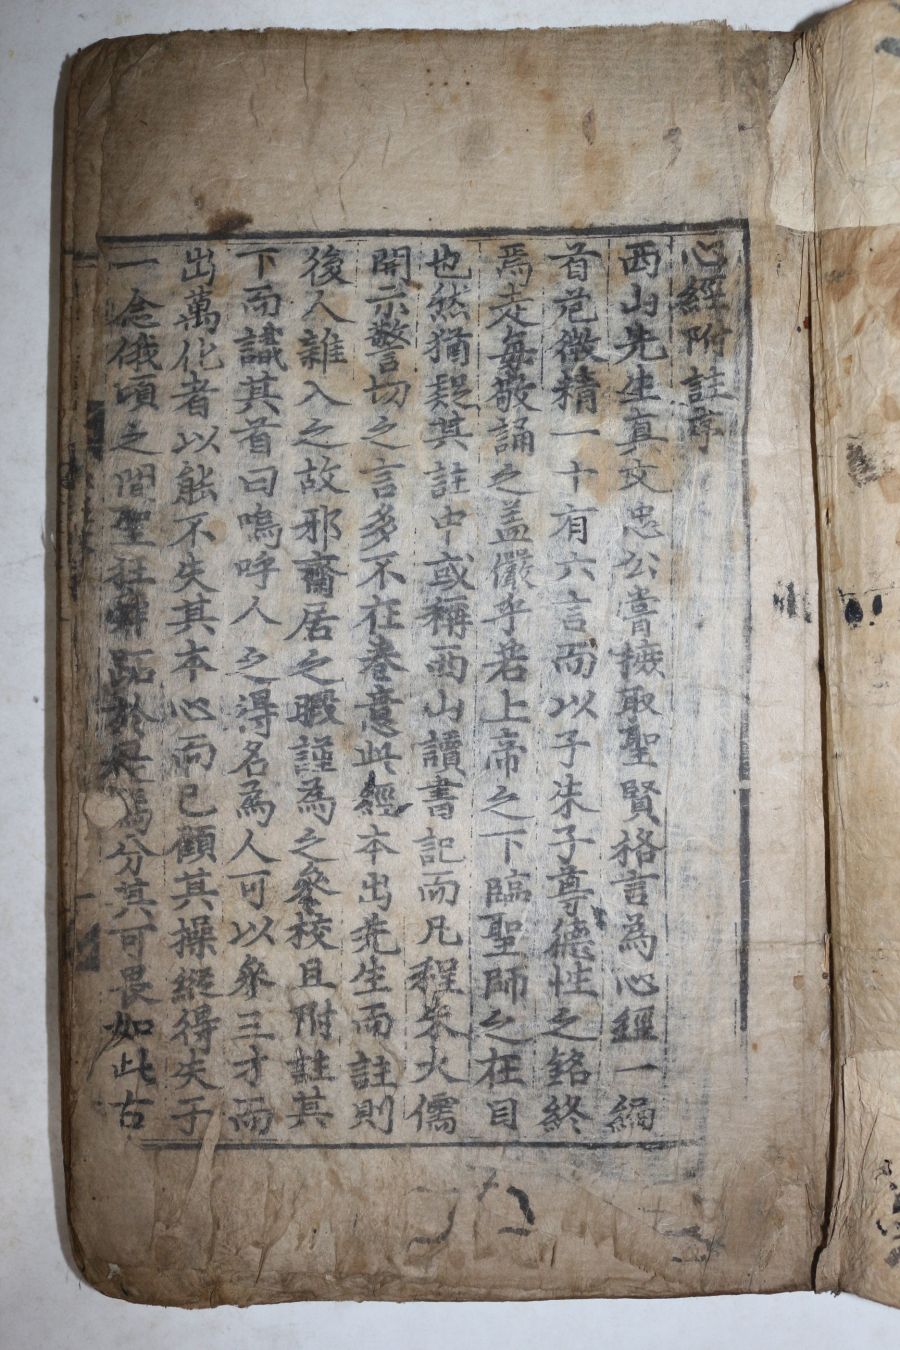 心經附註序
西山先生真文忠公嘗摭取聖賢格言為心經一編
首危微精一十有六言而以子朱子尊德性之銘終
焉走每敬誦之蓋儼乎若上帝之下臨聖師之在目
也然猶疑其註中或稱西山讀書記而凡程朱大儒
開示警切之言多不在卷意此經本出先生而註則
後人雜入之故邪齋居之暇謹為之參校且附註其
下而識其首曰嗚呼人之得名為人可以參三才而
出萬化者以能不失其本心而已顧其操縱得失于
一念俄頃之間聖狂舜跖於是焉分其可畏如此古